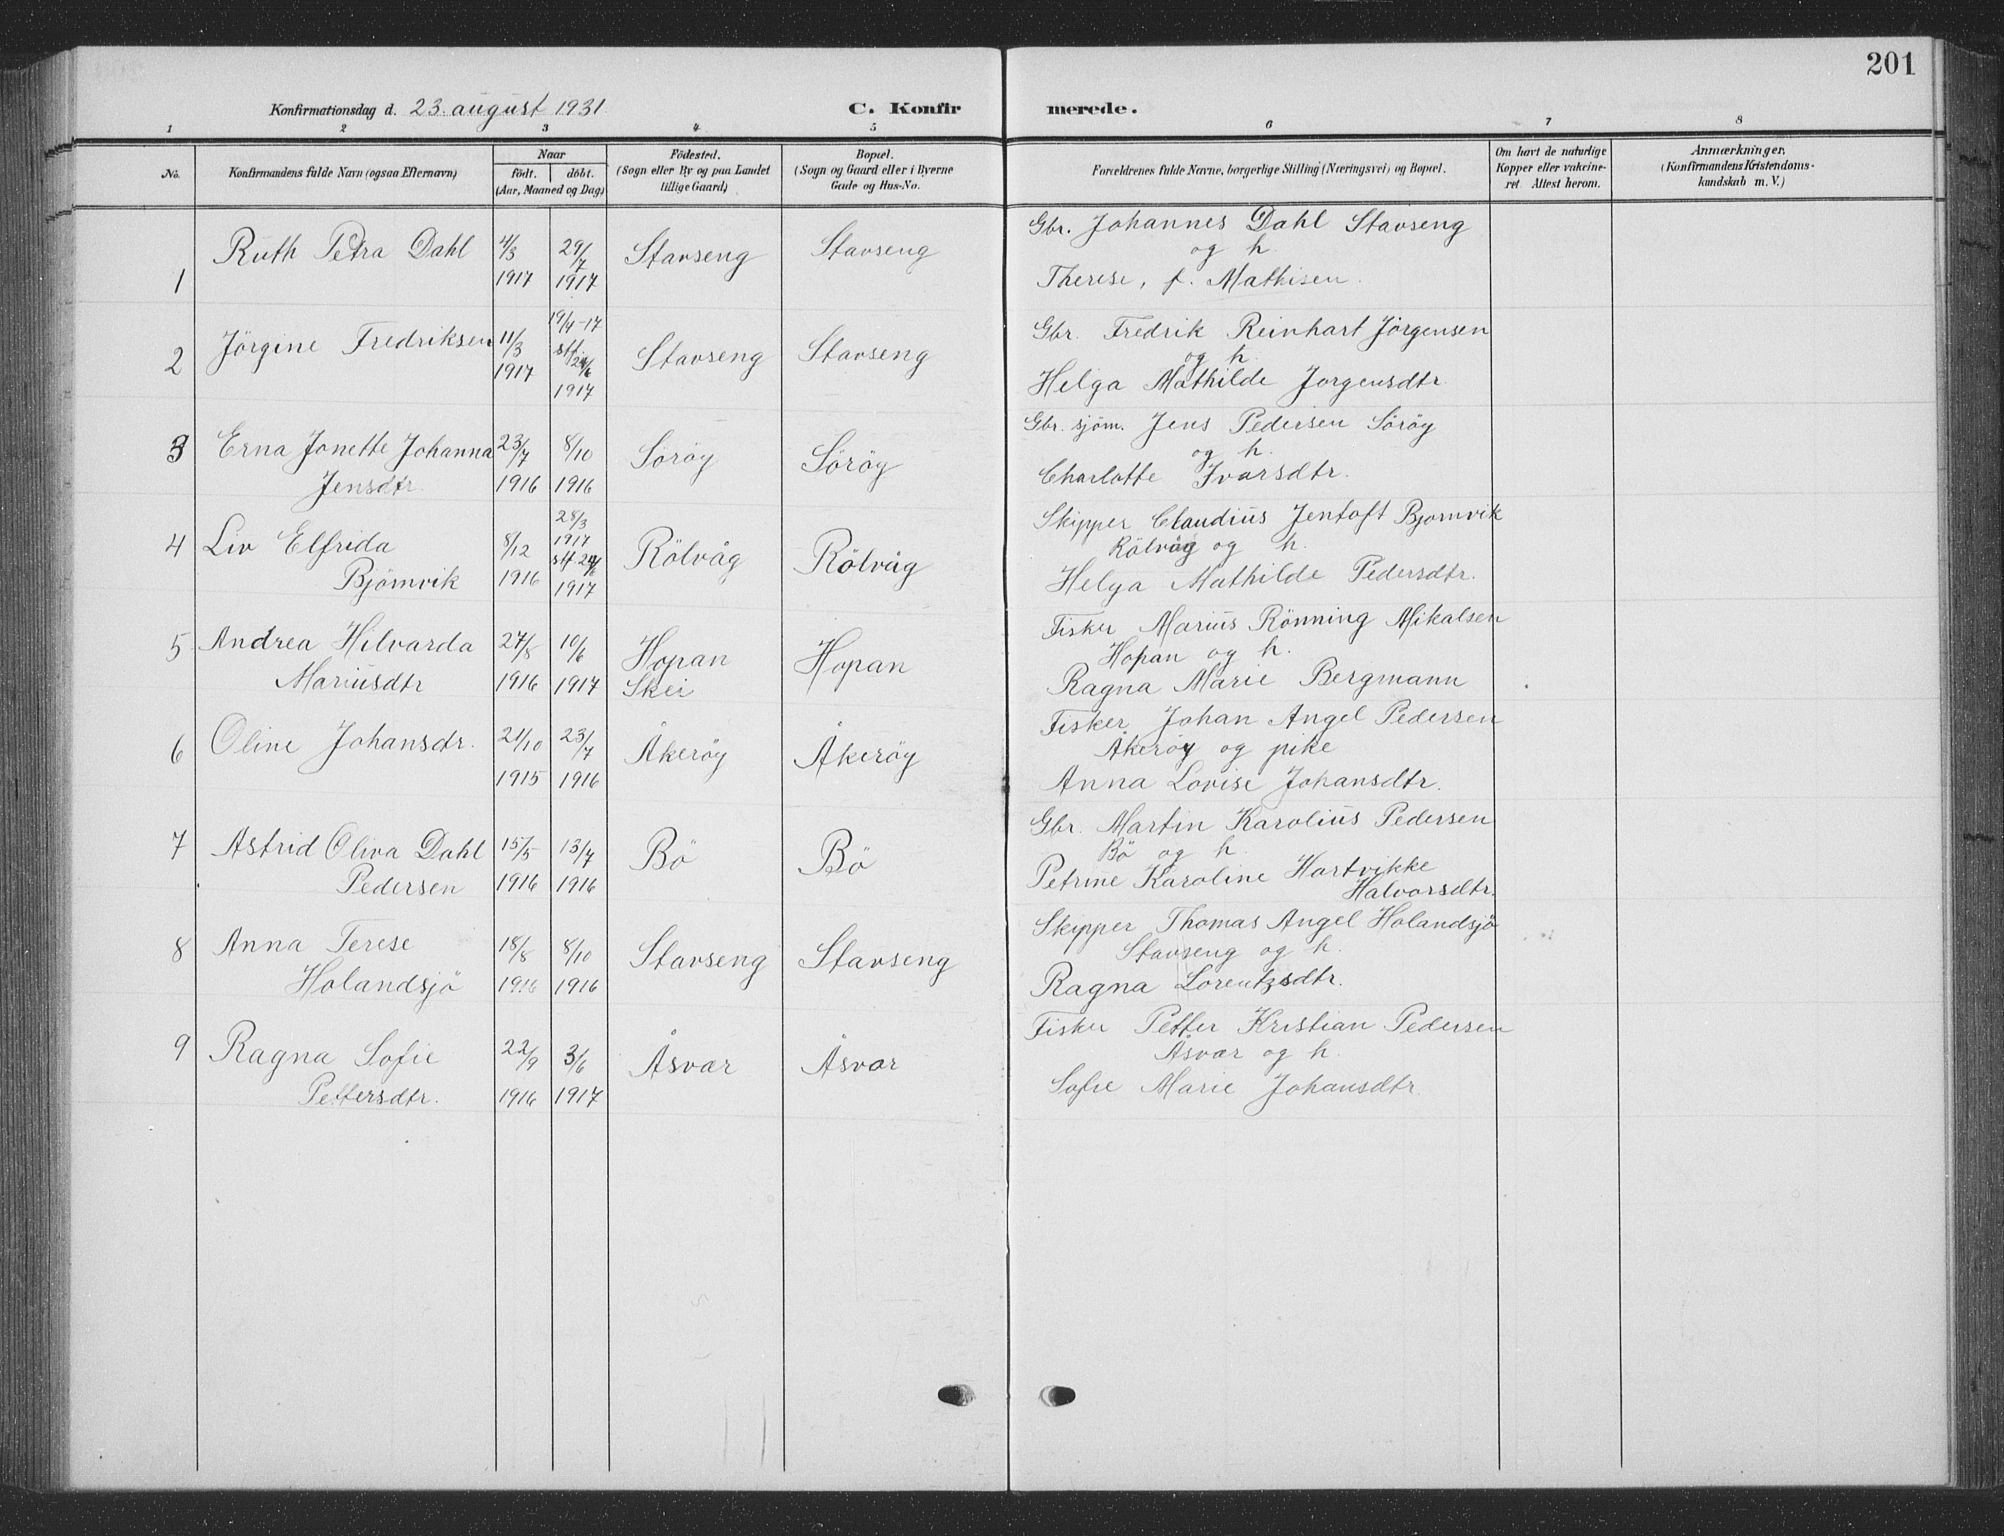 201
Konfirmationsdag d. 23. august 1931. C. Konfirmerede.
1 2 3 4 5 6 7 8
No.
Konfirmandens fulde Navn (ogsaa Efternavn)
Naar
födt. döbt.
(Aar, Maaned og Dag)
Födested.
(Sogn eller By og paa Landet
tillige Gaard)
Bopæl.
(Sogn og Gaard eller i Byerne
Gade og Hus-No.
Forældrenes fulde Navne, borgerlige Stilling (Næringsvei) og Bopæl.
Om havt de naturlige
Kopper eller vakcine-
ret. Attest herom.
Anmærkninger.
(Konfirmandens Kristendoms-
kundskab m. V.)
1 Ruth Petra Dahl 4/3 1917 29/7 1917 Stavseng Stavseng
Gbr. Johannes Dahl Stavseng
og h.
Therese, f. Mathisen.
2 Jörgine Fredriksen 11/3 1917 19/4-17 stf. 24/6 1917 Stavseng Stavseng
Gbr. Fredrik Reinhart Jörgensen
og h.
Helga Mathilde Jorgensdtr
3 Erna Jonette Johanna 23/7 1916 8/10 1916 Söröy Söröy
Jensdtr.
Gbr. sjöm. Jens Pedersen Söröy
og h.
Charlotte Ivarsdtr.
4 Liv Elfrida 8/12 1916 28/3 1917 stf 24/6 1917 Rölvåg Rölvåg
Björnvik
Skipper Claudius Jentoft Bjornvik
Rölvåg og h.
Helga Mathilde Pedersdtr.
5 Andrea Hilvarda 27/8 1916 10/6 1917 Hopan Skei Hopan
Mariusdtr
Fisker Marius Rönning Mikalsen
Hopan og h.
Ragna Marie Bergmann
6 Oline Johansdr. 21/10 1915 23/7 1916 Åkeröy Åkeröy
Fisker Johan Angel Pedersen
Åkeröy og pike
Anna Lovise Johansdtr.
7 Astrid Oliva Dahl 15/5 1916 13/7 1916 Bö Bö
Pedersen
Gbr. Martin Karolius Pedersen
Bö og h.
Petrine Karoline Hartvikke
Halvorsdtr.
8 Anna Terese 18/8 1916 8/10 1916 Stavseng Stavseng
Holandsjö
Skipper Thomas Angel Holandsjö
Stavseng og h.
Ragna Lorentzsdtr.
9 Ragna Sofie 22/9 1916 3/6 1917 Åsvær Åsvær
Pettersdtr.
Fisker Petter Kristian Pedersen
Åsvær og h.
Sofie Marie Johansdtr.